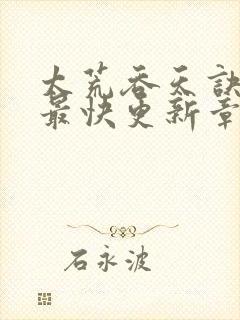 大荒吞天诀
最快更新章
石永波